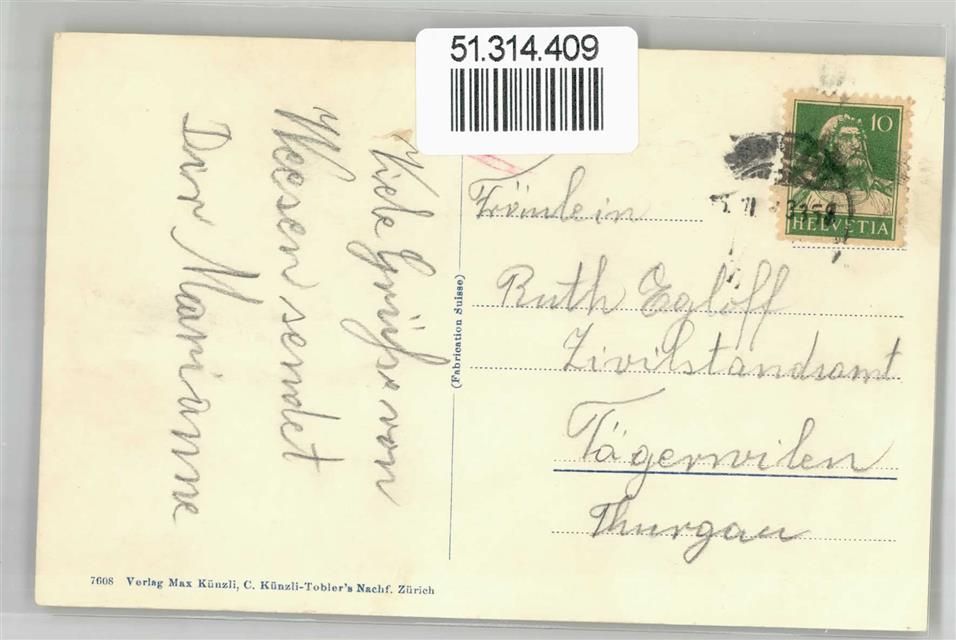 51.314.409
10
HELVETIA
Viele Grüsse von
Weesen sendet
Dir Marianne
(Fabrication Suisse)
Fräulein
Ruth Egloff
Zivilstandsamt
Tägerwilen
Thurgau
7608 Verlag Max Künzli, C. Künzli-Tobler's Nachf. Zürich